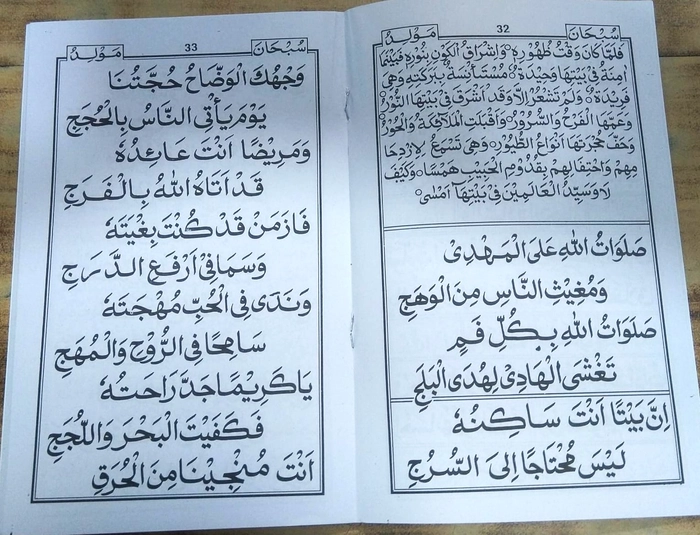 سُبْحَانَ 32 مَوْلِدُ
فَلَمَّا كَانَ وَقْتُ ظُهُوْرِهِ وَاِشْرَاقُ الْكَوْنِ بِنُوْرِهِ فَبَيْنَمَا
اٰمِنَةُ فِيْ بَيْتِهَا وَحِيْدَةٌ مُسْتَأْنِسَةٌ بِبَرَكَتِهِ وَهِيَ
فَرِيْدَةٌ وَلَمْ تَشْعُرْ اِلَّا وَقَدْ اَشْرَقَ فِيْ بَيْتِهَا النُّوْرُ
وَعَمَّهَا الْفَرَحُ وَالسُّرُوْرُ وَاَقْبَلَتِ الْمَلَائِكَةُ وَالْحُوْرُ
وَحَفَّ حُجْرَتَهَا اَنْوَاعُ الطُّيُوْرِ وَهِيَ تَسْمَعُ لِاِزْدِحَا
مِهِمْ وَاحْتِفَالِهِمْ بِقُدُوْمِ الْحَبِيْبِ هَمْسًا وَكَيْفَ
لَا وَسَيِّدُ الْعَالَمِيْنَ فِيْ بَيْتِهَا اَمْسٰى
صَلَوَاتُ اللهِ عَلَى الْمَهْدِيْ
وَمُغِيْثِ النَّاسِ مِنَ الْوَهَجِ
صَلَوَاتُ اللهِ بِكُلِّ فَمٍ
تَغْشَى الْهَادِيْ لِهُدَى الْبَلَجِ
اِنَّ بَيْتًا اَنْتَ سَاكِنُهُ
لَيْسَ مُحْتَاجًا اِلَى السُّرُجِ
سُبْحَانَ 33 مَوْلِدُ
وَجْهُكَ الْوَضَّاحُ حُجَّتُنَا
يَوْمَ يَأْتِى النَّاسُ بِالْحُجَجِ
وَمَرِيْضًا اَنْتَ عَائِدُهُ
قَدْ اَتَاهُ اللهُ بِالْفَرَجِ
فَازَ مَنْ قَدْ كُنْتَ بِغْيَتَهُ
وَسَمَا فِيْ اَرْفَعِ الدَّرَجِ
وَنَدٰى فِى الْحُبِّ مُهْجَتَهُ
سَامِحًا فِى الرُّوْحِ وَالْمُهَجِ
يَا كَرِيْمًا جَدَّ رَاحَتُهُ
فَكَفَيْتَ الْبَحْرَ وَاللُّجَجِ
اَنْتَ مُنْجِيْنَا مِنَ الْحُرَقِ